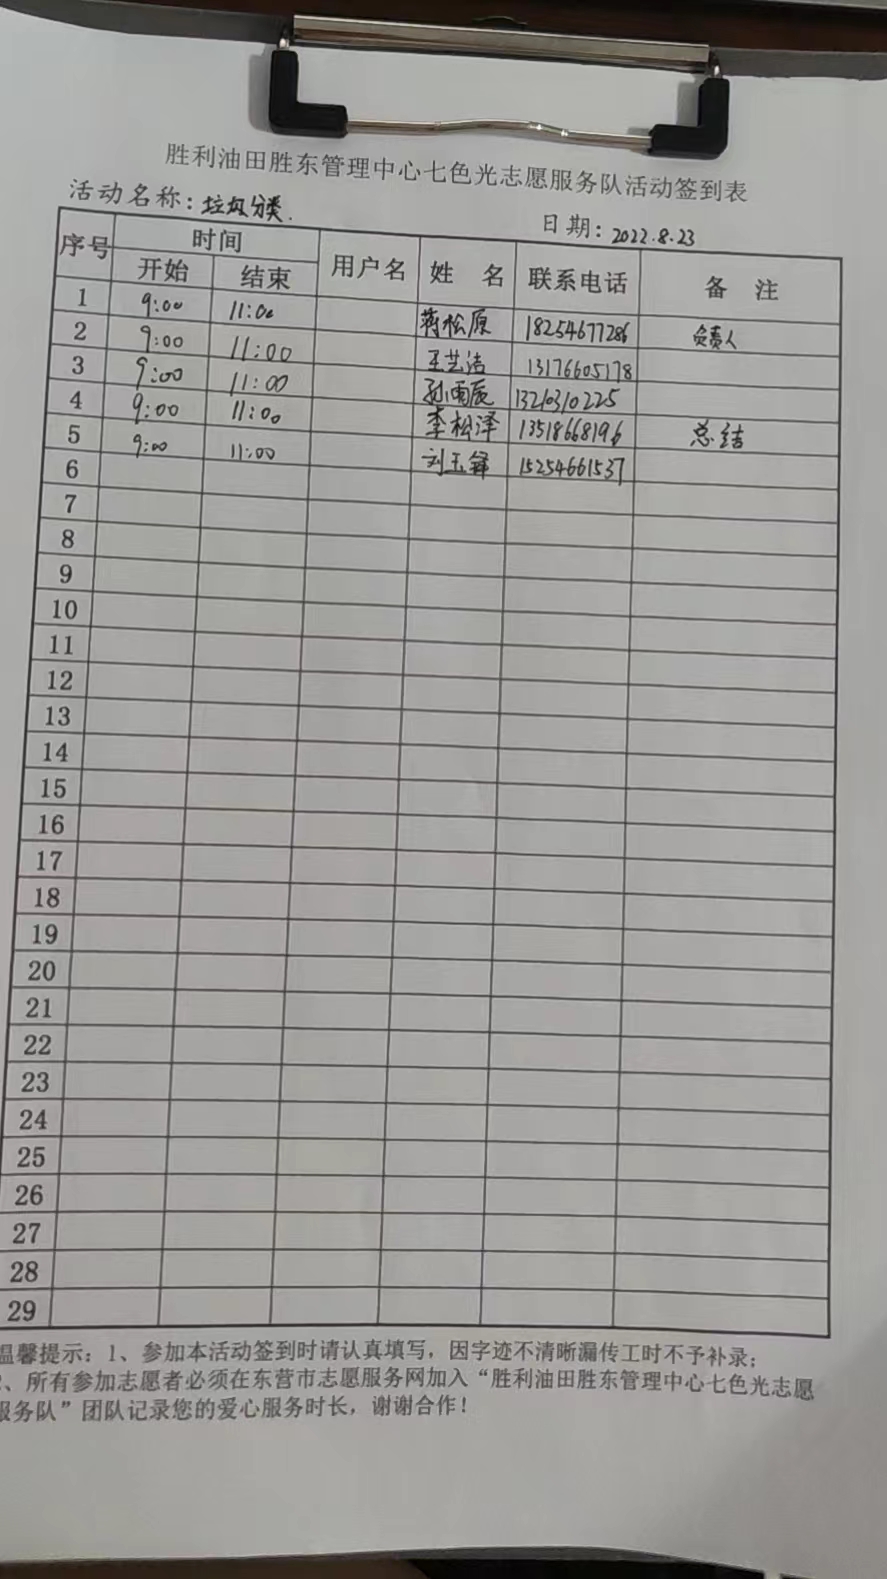 胜利油田胜东管理中心七色光志愿服务队活动签到表
活动名称：垃圾分类.
日期：2022.8.23
序号 时间 用户名 姓 名 联系电话 备 注
开始 结束
1 9:00 11:00 蒋松原 18254677286 负责人
2 9:00 11:00 王艺洁 13176605178
3 9:00 11:00 孙雨辰 13210310225
4 9:00 11:00 李松泽 13518668196 总结
5 9:00 11:00 刘玉铎 15254661537
6
7
8
9
10
11
12
13
14
15
16
17
18
19
20
21
22
23
24
25
26
27
28
29
温馨提示：1、参加本活动签到时请认真填写，因字迹不清晰漏传工时不予补录；
2、所有参加志愿者必须在东营市志愿服务网加入“胜利油田胜东管理中心七色光志愿
服务队”团队记录您的爱心服务时长，谢谢合作！